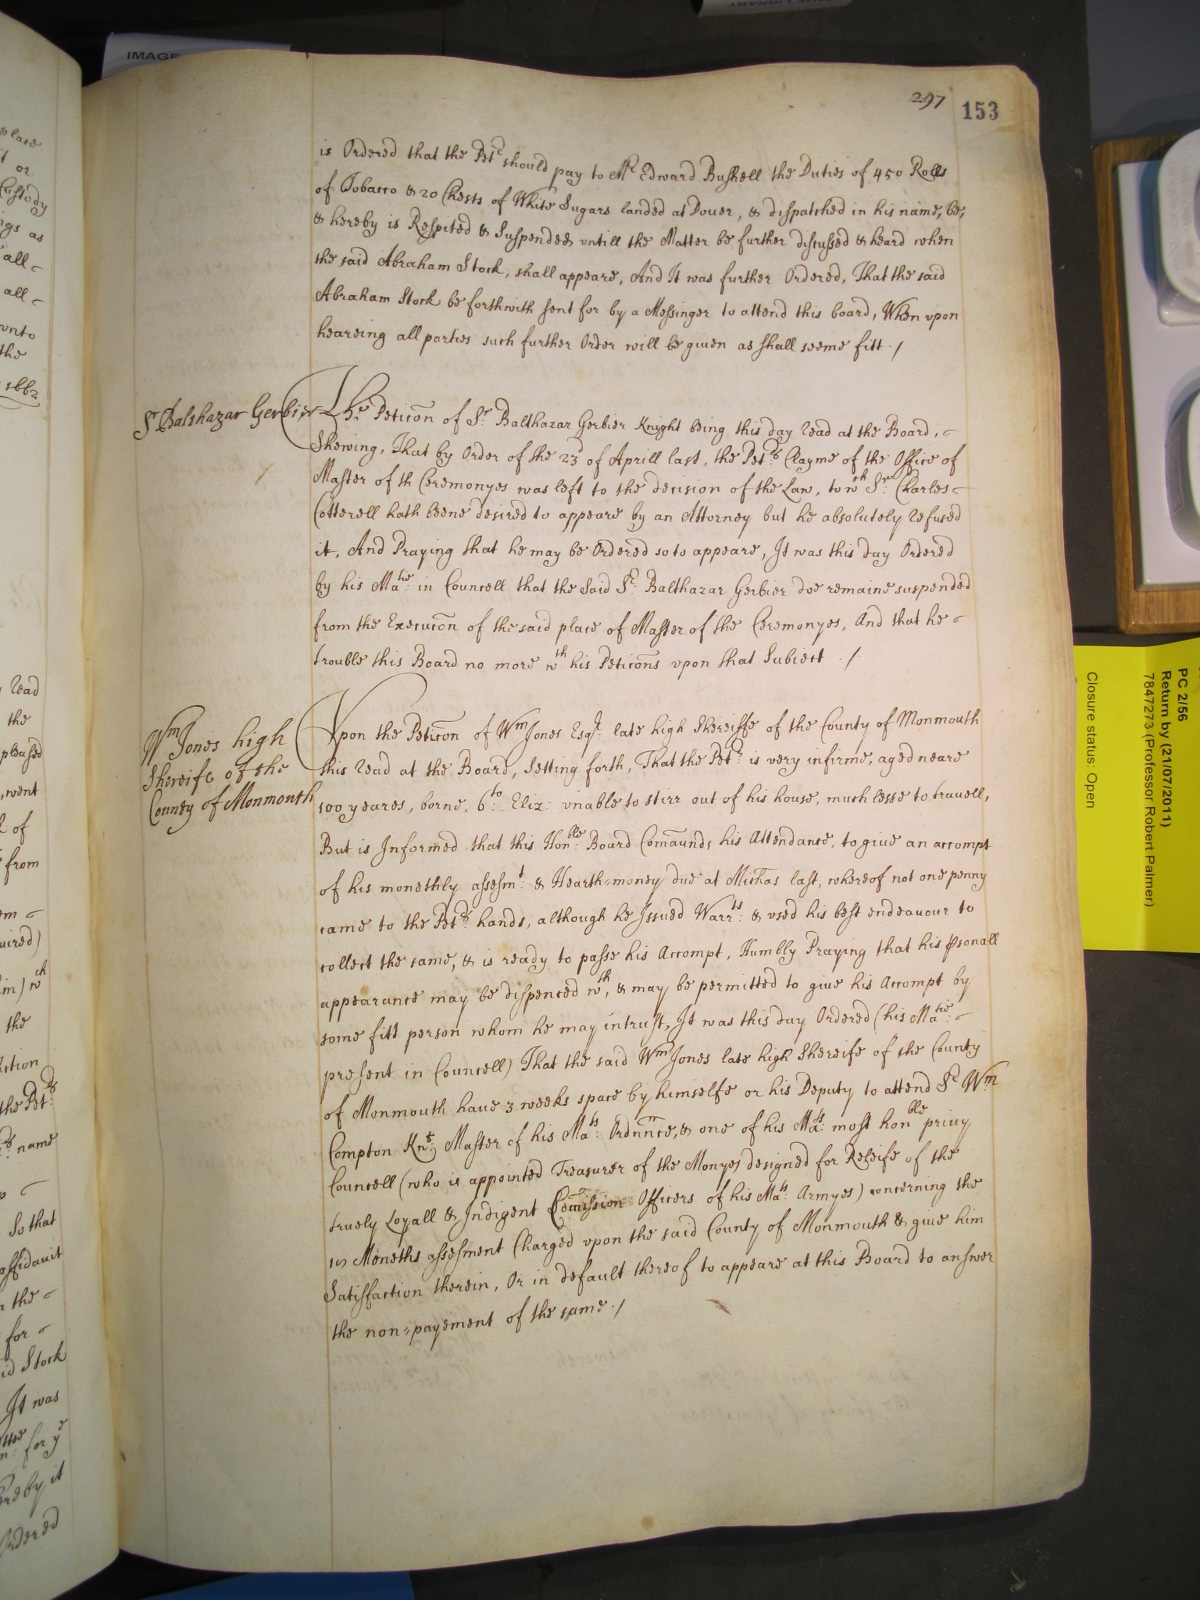 IMAGE
297
153
is Ordered that the Petr should pay to Mr Edward Bushell the Duties of 450 Rolls
of Tobacco & 20 Chests of White Sugars landed at Dover, & dispatched in his name, be,
& hereby is Respited & Suspended untill the Matter be further discussed & heard when
the said Abraham Stock, shall appeare, And It was further Ordered, That the said
Abraham Stock be forthwith sent for by a Messinger to attend this board, When upon
heareing all parties such further Order will be given as shall seeme fitt ./
Sr Balthazar Gerbier
The Peticon of Sr Balthazar Gerbier Knight being this day read at the Board,
Shewing, That by Order of the 23d of Aprill last, the Petrs Clayme of the Office of
Master of th Ceremonyes was left to the decision of the Law, to wch Sr Charles
Cotterell hath beene desired to appeare by an Attorney but he absolutely refused
it, And Praying that he may be Ordered so to appeare, It was this day Ordered
by his Matie in Councell that the said Sr Balthazar Gerbier doe remaine suspended
from the Execucon of the said place of Master of the Ceremonyes, And that he
trouble this Board no more wth his Peticons upon that Subiect ./
Wm Jones high
Shereife of the
County of Monmouth
Vpon the Peticon of Wm Jones Esqr late high Shereiffe of the County of Monmouth
this read at the Board, Setting forth, That the Petr is very infirme, aged neare
100 yeares, borne, 6to Eliz: vnable to stirr out of his house, much lesse to travell,
But is Informed that this Honble Board Comaunds his Attendance, to give an accompt
of his monethly assesmt & Hearth-money due at Michas last, whereof not one penny
came to the Petrs hands, although he Issued Warrts & vsed his best endeavour to
collect the same, & is ready to passe his Accompt, Humbly Praying that his psonall
appearance may be dispenced wth, & may be permitted to give his Accompt by
some fitt person whom he may intrust, It was this day Ordered (his Matie
present in Councell) That the said Wm Jones late high Shereife of the County
of Monmouth have 3 weeks space by himselfe or his Deputy to attend Sr Wm
Compton Knt Master of his Mats Ordnnce, & one of his Mats most honble privy
Councell (who is appointed Treasurer of the Monyes designed for Releife of the
truely Loyall & Indigent Comission Officers of his Mats Armyes) concerning the
Moneths assesment Charged upon the said County of Monmouth & give him
Satisfaction therein, Or in default thereof to appeare at this Board to answer
the non-payement of the same ./
PC 2/56
Return by (21/07/2011)
7847273 (Professor Robert Palmer)
Closure status: Open